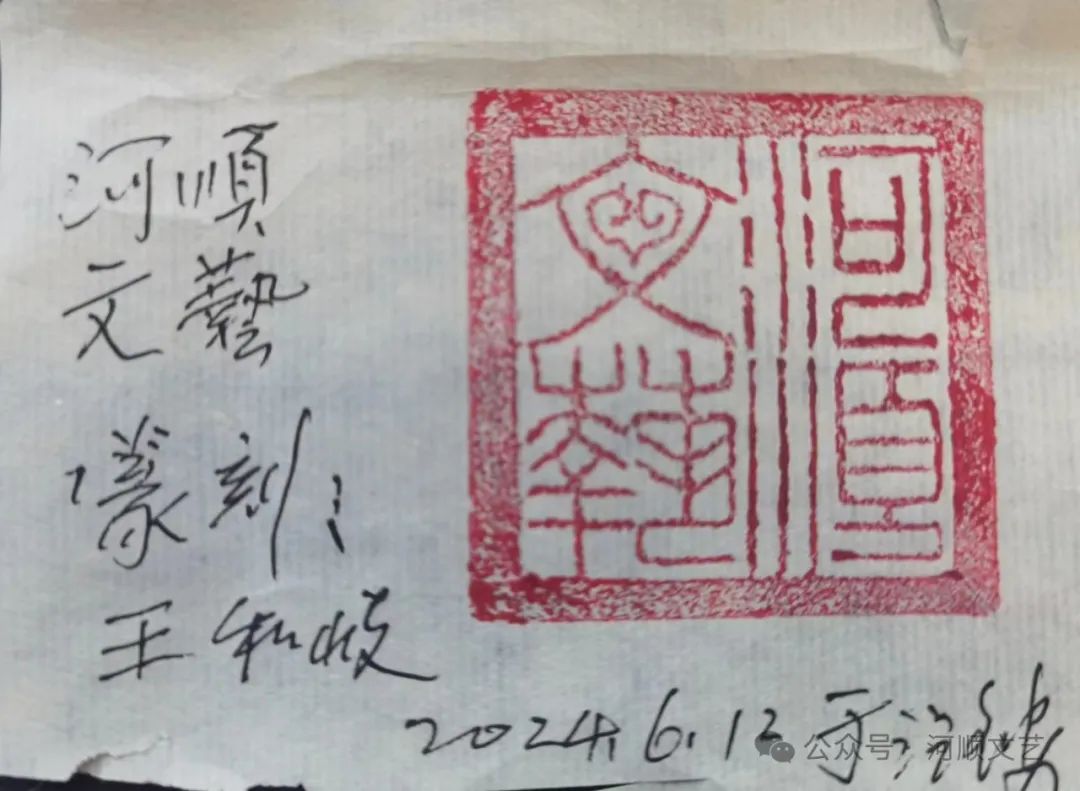 河順
文藝
篆刻:
王和岐
2024.6.12于
河順文藝
公众号 · 河顺文艺